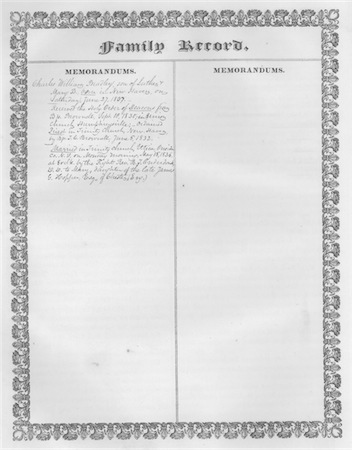 Family Record.
MEMORANDUMS.
MEMORANDUMS.
Charles William Bradley, son of Luther &
Mary D. born in New Haven on
Saturday, June 27, 1807.
Received the Holy Order of Deacon from
Bp. Brownell, Sept. 1830, in
Church, Humphreysville; Ordained
Priest in Trinity Church, New Haven
by Bp. T. C. Brownell, June 8, 1832.
Married in Trinity Church, Utica, Oneida
Co. N.Y. on Monday morning, May 16, 1836
at by the Right Rev. B. T. Onderdonk
D.D. to Mary, daughter of the late James
E. Hopper, Esq. of